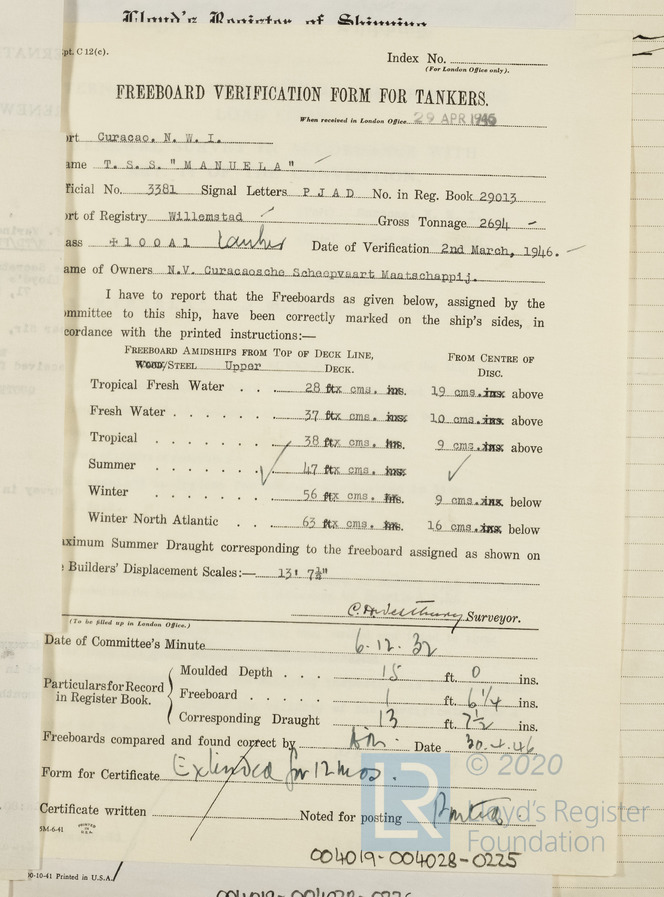 Lloyd's Register of Shipping
pt. C 12(c).
Index No.
(For London Office only).
FREEBOARD VERIFICATION FORM FOR TANKERS.
When received in London Office 29 APR 1946
ort Curacao. N. W. I.
ame T. S. S. "MANUELA"
ficial No. 3381 Signal Letters P J A D No. in Reg. Book 29013
ort of Registry Willemstad Gross Tonnage 2694
ass ✠100A1 tanker Date of Verification 2nd March, 1946.
ame of Owners N.V. Curacaosche Scheepvaart Maatschappij.
I have to report that the Freeboards as given below, assigned by the
ommittee to this ship, have been correctly marked on the ship's sides, in
cordance with the printed instructions:—
FREEBOARD AMIDSHIPS FROM TOP OF DECK LINE,
WOOD/STEEL Upper DECK.
FROM CENTRE OF
DISC.
Tropical Fresh Water . . 28 ft. cms. ins. 19 cms. ins. above
Fresh Water . . . . . . 37 ft. cms. ins. 10 cms. ins. above
Tropical . . . . . . . 38 ft. cms. ins. 9 cms. ins. above
Summer . . . . . . . 47 ft. cms. ins.
Winter . . . . . . . 56 ft. cms. ins. 9 cms. ins. below
Winter North Atlantic . . 63 ft. cms. ins. 16 cms. ins. below
aximum Summer Draught corresponding to the freeboard assigned as shown on
e Builders' Displacement Scales:— 13' 7½"
Surveyor.
(To be filled up in London Office.)
Date of Committee's Minute 6.12.32
Particulars for Record
in Register Book.
Moulded Depth . . . 15 ft. 0 ins.
Freeboard . . . . . 1 ft. 6¼ ins.
Corresponding Draught 13 ft. 7½ ins.
Freeboards compared and found correct by Date 30.4.46
Form for Certificate Extended for 12 mos.
Certificate written Noted for posting
5M-6-41
PRINTED IN U.S.A.
© 2020
LR
Lloyd's Register
Foundation
004019-004028-0225
0-10-41 Printed in U.S.A.